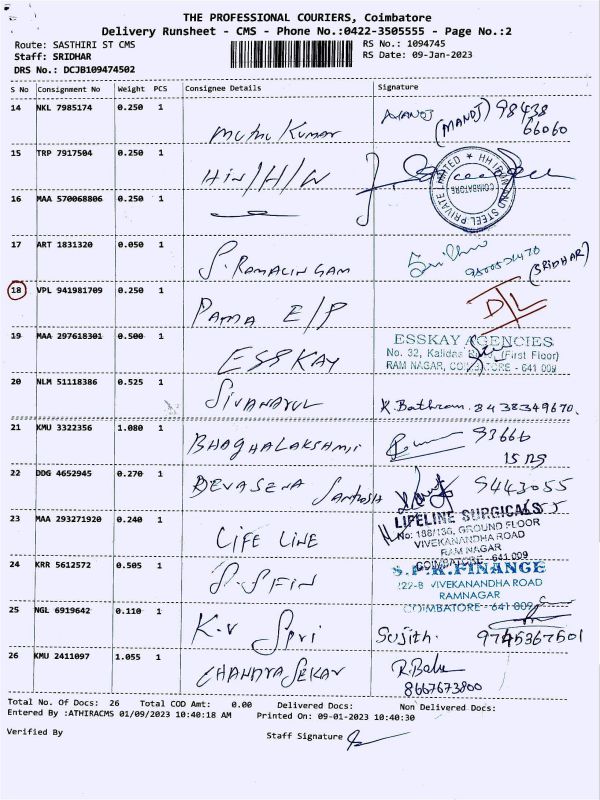 THE PROFESSIONAL COURIERS, Coimbatore
Delivery Runsheet - CMS - Phone No.:0422-3505555 - Page No.:2
Route: SASTHIRI ST CMS RS No.: 1094745
Staff: SRIDHAR RS Date: 09-Jan-2023
DRS No.: DCJB109474502
S No Consignment No Weight PCS Consignee Details Signature
14 NKL 7985174 0.250 1 Muthu Kumar (MANOJ) 98438
66060
15 TRP 7917504 0.250 1 Hin/H/W
STEEL PRIVATE LIMITED COIMBATORE
16 MAA 570068806 0.250 1
17 ART 1831320 0.050 1 S. Ramalingam (SRIDHAR)
18 VPL 941981709 0.250 1 Pama E/P D/L
19 MAA 297618301 0.500 1 ESSKAY ESSKAY AGENCIES
No. 32, Kalidas Road, (First Floor)
RAM NAGAR, COIMBATORE - 641 009
20 NLM 51118386 0.525 1 K. Bathram. 8438349670.
21 KMU 3322356 1.080 1 93666
22 DDG 4652945 0.270 1 DEVASENA Santhosh 9443055
655
23 MAA 293271920 0.240 1 LIFE LINE LIFELINE SURGICALS
No: 186/136, GROUND FLOOR
VIVEKANANDHA ROAD
RAM NAGAR
COIMBATORE - 641 009
24 KRR 5612572 0.505 1 S.P.K. FINANCE
122-B VIVEKANANDHA ROAD
RAMNAGAR
COIMBATORE - 641 009
25 NGL 6919642 0.110 1 K.V Spri Sujith. 9745367501
26 KMU 2411097 1.055 1 CHANDRA SEKAR R. Babu
8667673800
Total No. Of Docs: 26 Total COD Amt: 0.00 Delivered Docs: Non Delivered Docs:
Entered By :ATHIRACMS 01/09/2023 10:40:18 AM Printed On: 09-01-2023 10:40:30
Verified By Staff Signature